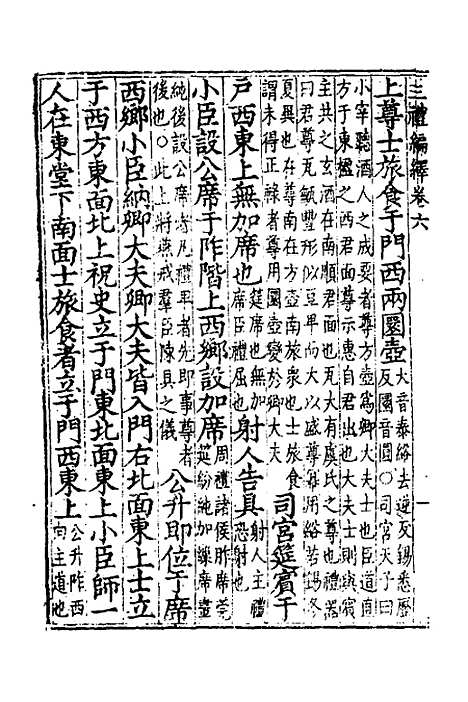 三禮編繹卷六 一
上尊士旅食于門西兩圜壺大音泰綌去逆反錫悉歷
反圜音圓○司宮天子曰
小宰聽酒人之成要者尊方壺爲卿大夫士也臣道直
方于東楹之西君面尊示惠自君出也大夫士則與賓
主共之玄酒在南順君面也瓦大有虞氏之尊也禮器
曰君尊瓦甒豐形似豆卑而大以盛尊冪用綌若錫冬
夏異也在尊南在方壺南旅衆也士旅食
謂未得正祿者尊用圜壺變於卿大夫司宮筵賓于
戶西東上無加席也筵席也無加
席臣禮屈也射人告具射人主禮
射也
小臣設公席于阼階上西鄉設加席周禮諸侯胙席莞
筵紛純加繅席畫
純後設公席者凡禮卑者先即事尊者
後也○此上將燕戒羣臣陳具之儀公升即位于席
西鄉小臣納卿大夫卿大夫皆入門右北面東上士立
于西方東面北上祝史立于門東北面東上小臣師一
人在東堂下南面士旅食者立于門西東上公升阼西
向主道也